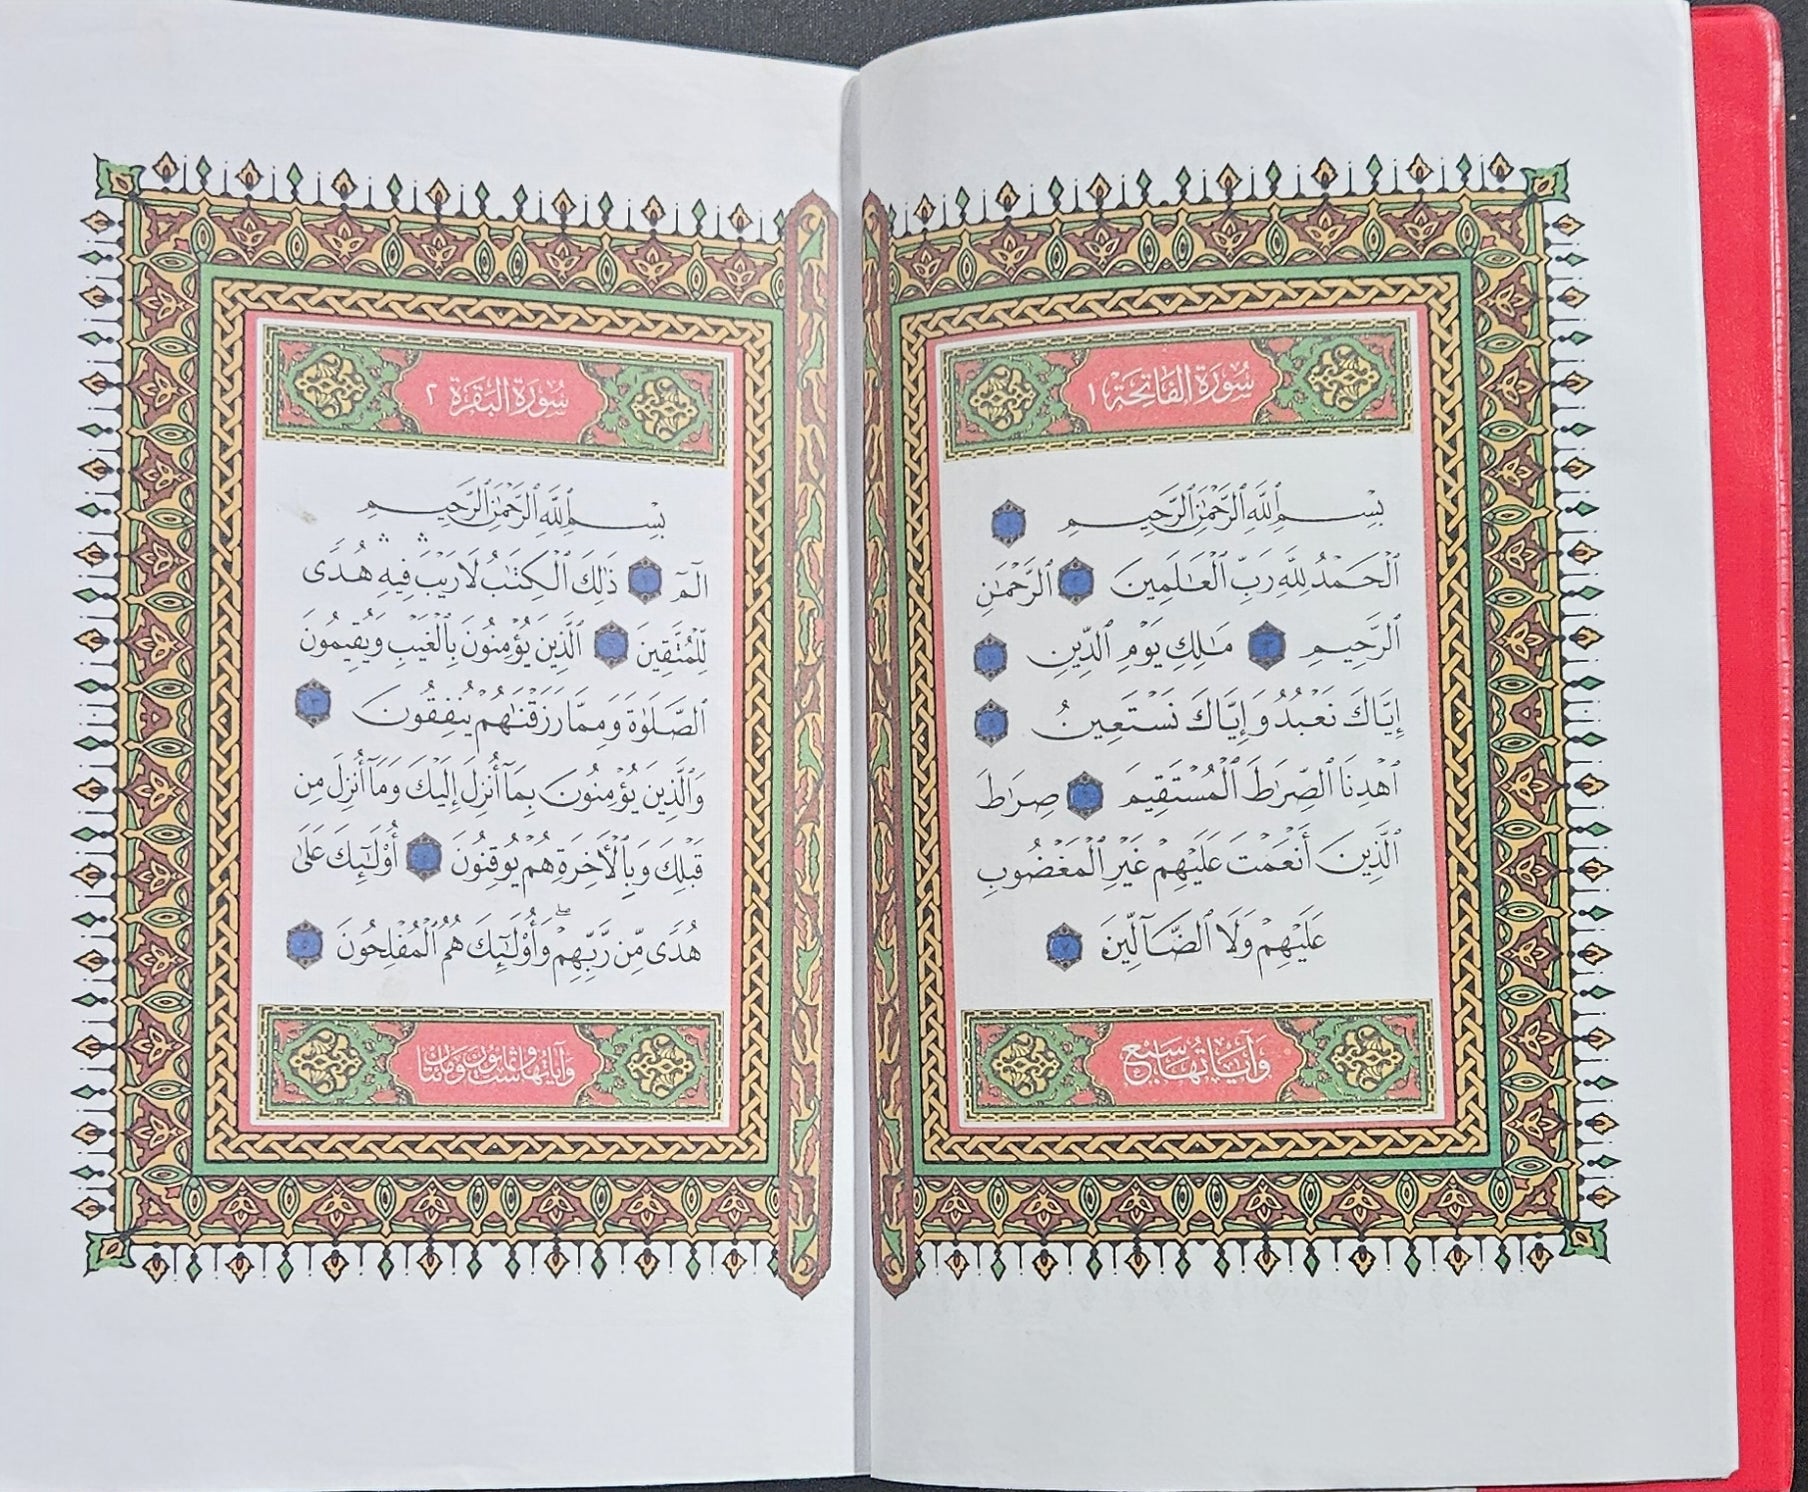 سُورَةُ الفَاتِحَةِ ١
بِسْمِ ٱللَّهِ ٱلرَّحْمَٰنِ ٱلرَّحِيمِ ١
ٱلْحَمْدُ لِلَّهِ رَبِّ ٱلْعَٰلَمِينَ ٢ ٱلرَّحْمَٰنِ
ٱلرَّحِيمِ ٣ مَٰلِكِ يَوْمِ ٱلدِّينِ ٤
إِيَّاكَ نَعْبُدُ وَإِيَّاكَ نَسْتَعِينُ ٥
ٱهْدِنَا ٱلصِّرَٰطَ ٱلْمُسْتَقِيمَ ٦ صِرَٰطَ
ٱلَّذِينَ أَنْعَمْتَ عَلَيْهِمْ غَيْرِ ٱلْمَغْضُوبِ
عَلَيْهِمْ وَلَا ٱلضَّآلِّينَ ٧
وَآيَاتُهَا سَبْعٌ
سُورَةُ البَقَرَةِ ٢
بِسْمِ ٱللَّهِ ٱلرَّحْمَٰنِ ٱلرَّحِيمِ
الٓمٓ ١ ذَٰلِكَ ٱلْكِتَٰبُ لَا رَيْبَ ۛ فِيهِ ۛ هُدًى
لِّلْمُتَّقِينَ ٢ ٱلَّذِينَ يُؤْمِنُونَ بِٱلْغَيْبِ وَيُقِيمُونَ
ٱلصَّلَوٰةَ وَمِمَّا رَزَقْنَٰهُمْ يُنفِقُونَ ٣
وَٱلَّذِينَ يُؤْمِنُونَ بِمَآ أُنزِلَ إِلَيْكَ وَمَآ أُنزِلَ مِن
قَبْلِكَ وَبِٱلْأَخِرَةِ هُمْ يُوقِنُونَ ٤ أُو۟لَٰٓئِكَ عَلَىٰ
هُدًى مِّن رَّبِّهِمْ ۖ وَأُو۟لَٰٓئِكَ هُمُ ٱلْمُفْلِحُونَ ٥
وَآيَاتُهَا سِتٌّ وَثَمَانُونَ وَمِائَتَانِ